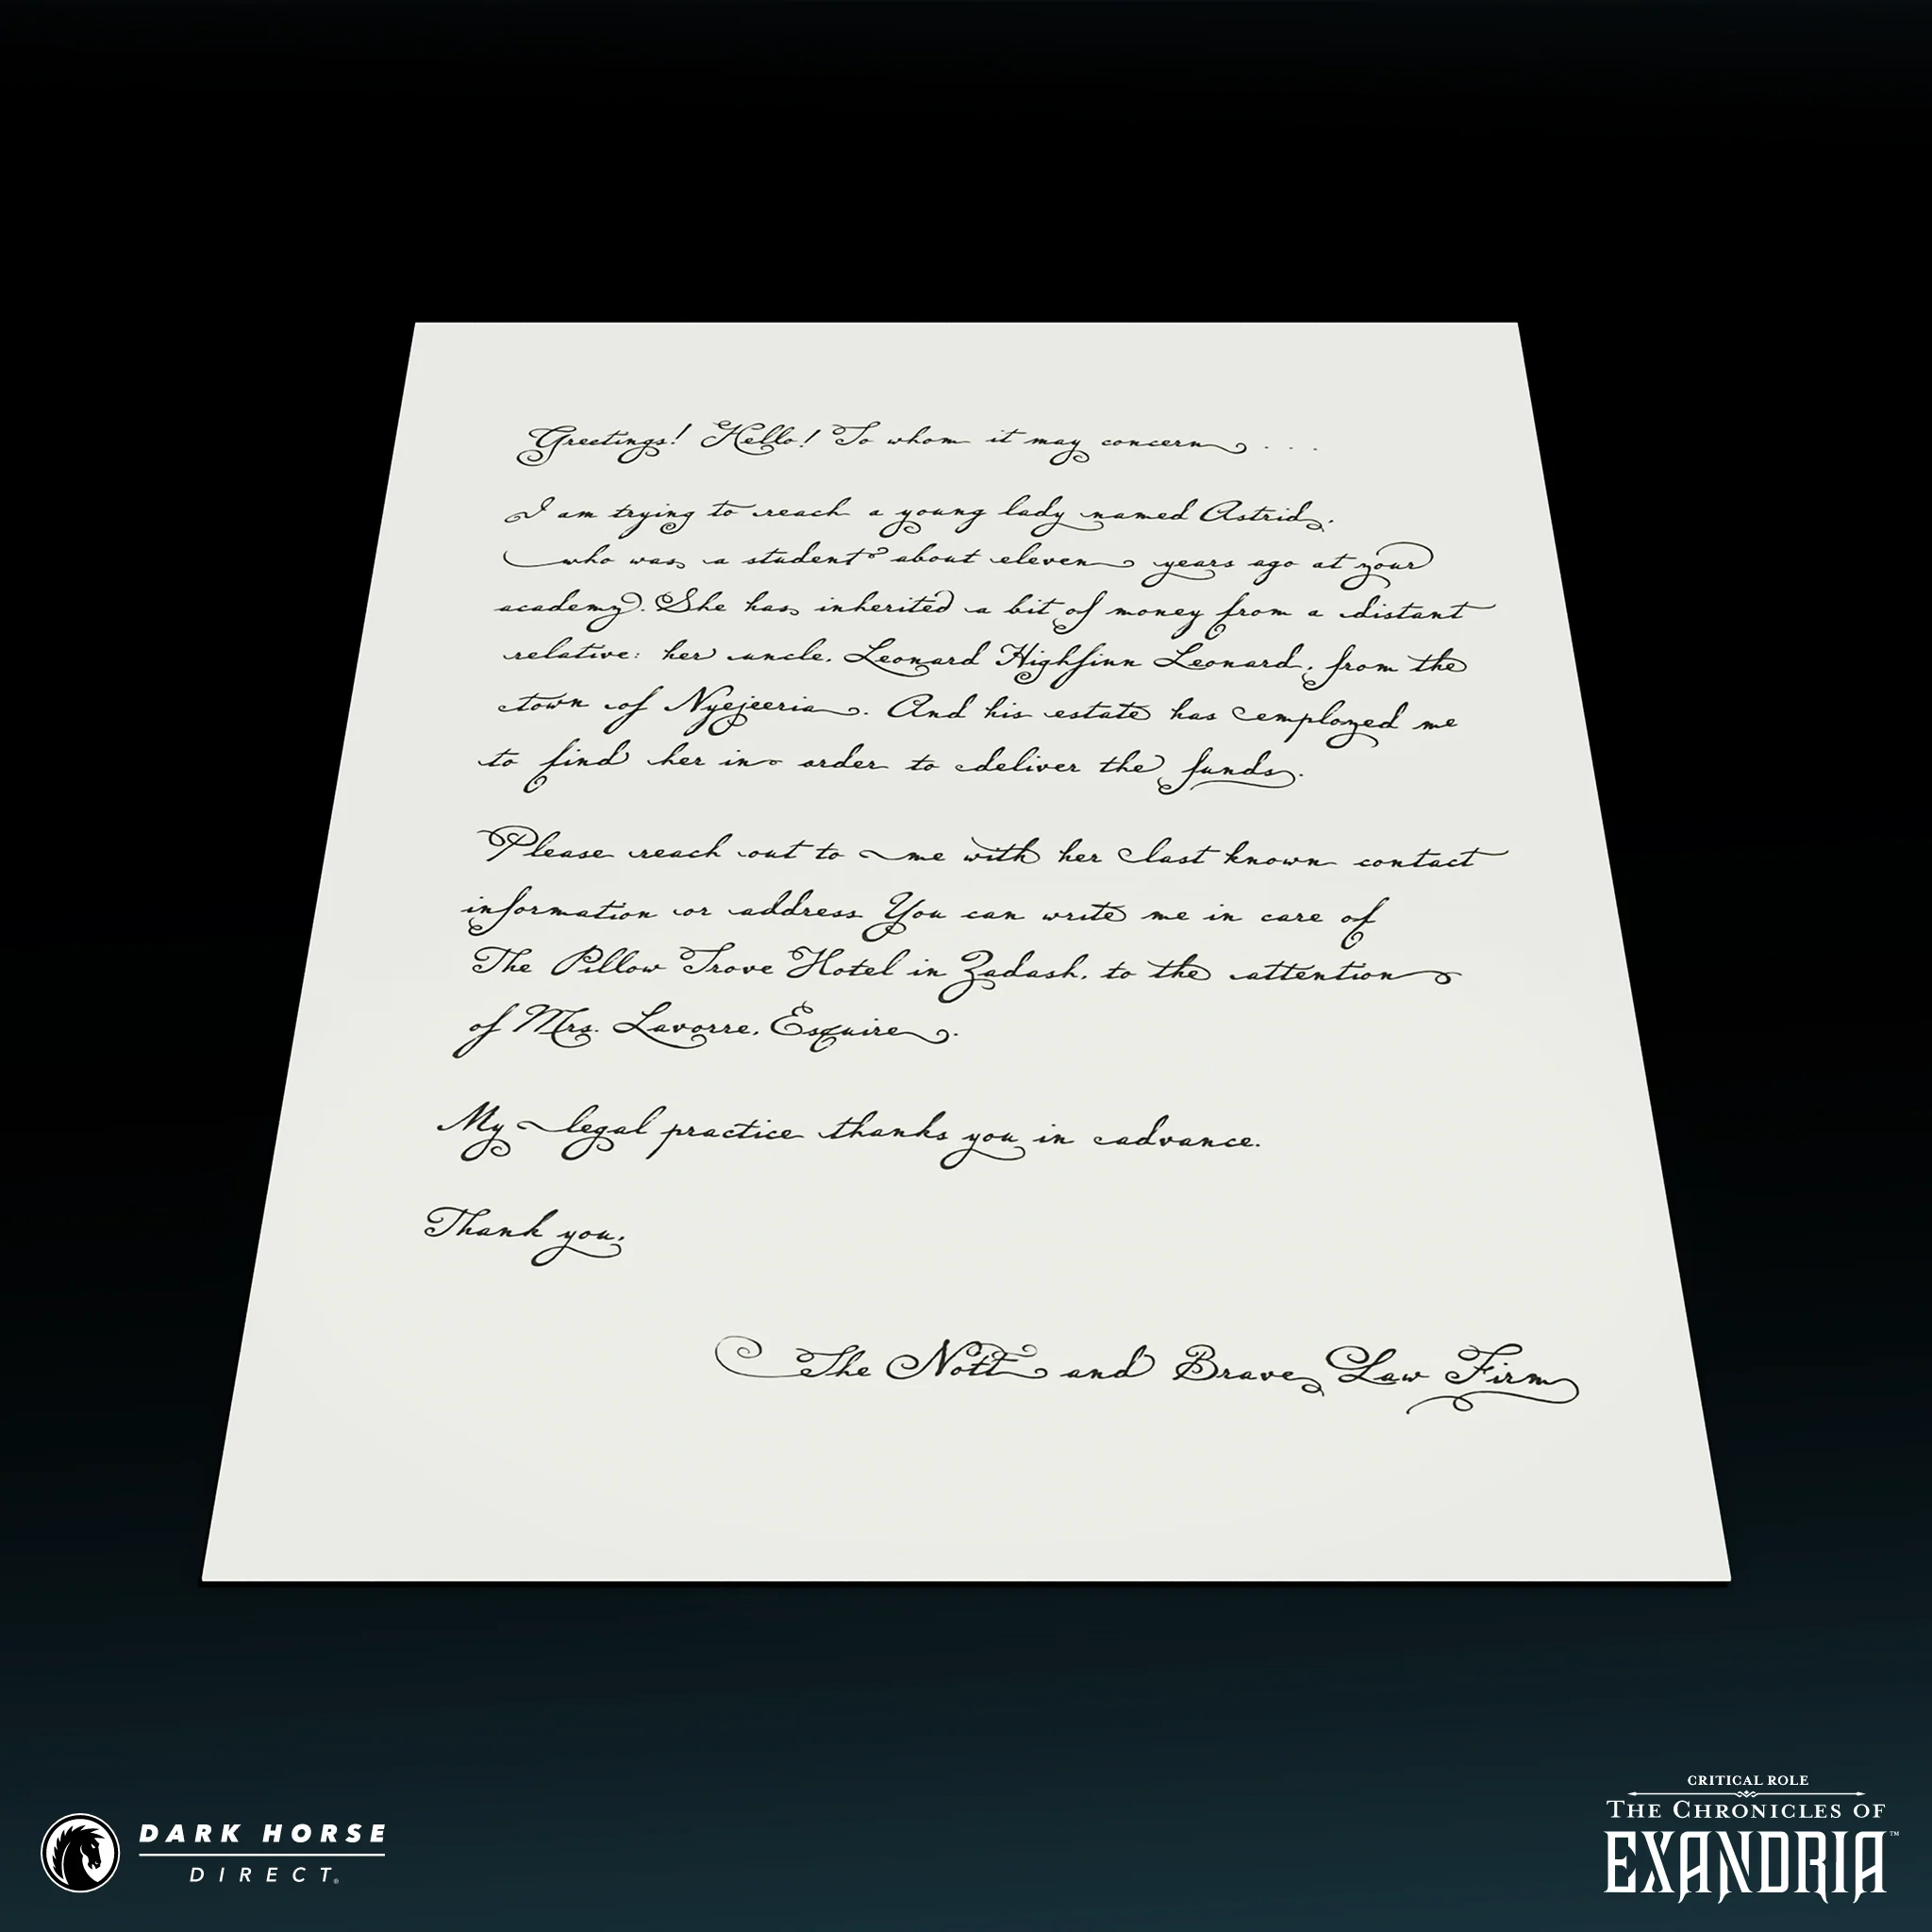 Greetings! Hello! To whom it may concern . . .
I am trying to reach a young lady named Astrid,
who was a student about eleven years ago at your
academy. She has inherited a bit of money from a distant
relative: her uncle, Leonard Highfinn Leonard, from the
town of Nyejeeria. And his estate has employed me
to find her in order to deliver the funds.
Please reach out to me with her last known contact
information or address You can write me in care of
The Pillow Trove Hotel in Zadash, to the attention
of Mrs. Lavorre, Esquire.
My legal practice thanks you in advance.
Thank you,
The Nott and Brave Law Firm
DARK HORSE
DIRECT®
CRITICAL ROLE
THE CHRONICLES OF
EXANDRIA™